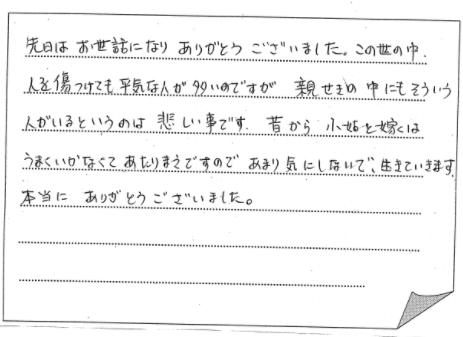 先日は お世話になり ありがとう ございました。この世の中.
人を傷つけても平気な人が多いのですが 親せきの中にもそういう
人がいるというのは 悲しい事です. 昔から 小姑と嫁くは
うまくいかなくて あたりまえですので あまり気にしないで、生きていきます.
本当に ありがとうございました。